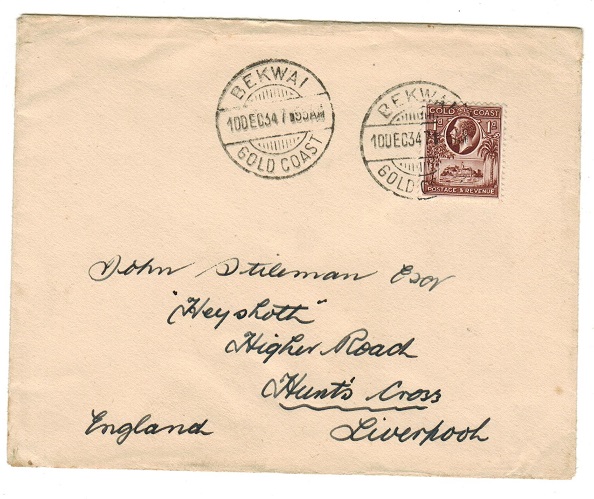 BEKWAI
10 DEC 34 7
GOLD COAST
BEKWAI
10 DEC 34
GOLD C
GOLD COAST
1D 1D
POSTAGE & REVENUE
John Stileman Esqr
"Heyshott"
Higher Road
Hunt's Cross
Liverpool
England